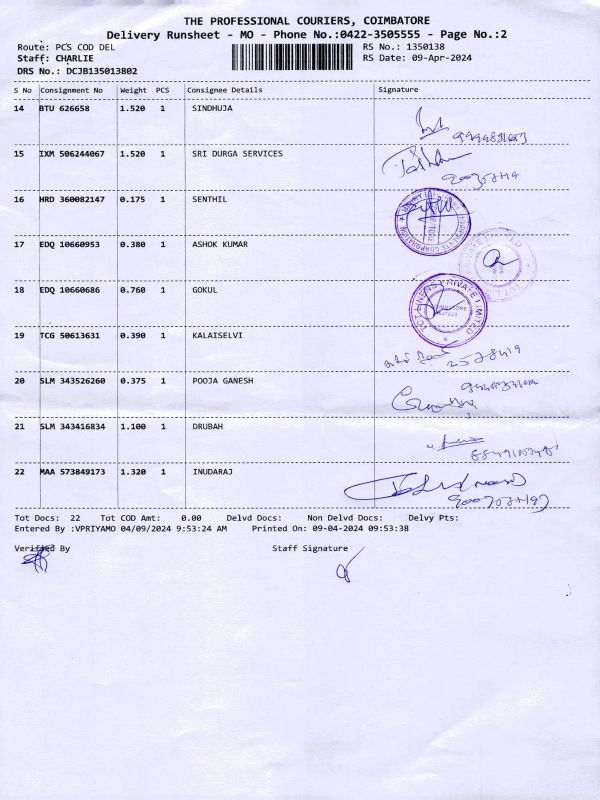 THE PROFESSIONAL COURIERS, COIMBATORE
Delivery Runsheet - MO - Phone No.:0422-3505555 - Page No.:2
Route: PCS COD DEL RS No.: 1350138
Staff: CHARLIE RS Date: 09-Apr-2024
DRS No.: DCJB135013802
S No Consignment No Weight PCS Consignee Details Signature
14 BTU 626658 1.520 1 SINDHUJA
15 IXM 506244067 1.520 1 SRI DURGA SERVICES
16 HRD 360082147 0.175 1 SENTHIL
17 EDQ 10660953 0.380 1 ASHOK KUMAR
18 EDQ 10660686 0.760 1 GOKUL
TCT LINENS PRIVATE LIMITED
19 TCG 50613631 0.390 1 KALAISELVI
20 SLM 343526260 0.375 1 POOJA GANESH
21 SLM 343416834 1.100 1 DRUBAH
22 MAA 573849173 1.320 1 INUDARAJ
Tot Docs: 22 Tot COD Amt: 0.00 Delvd Docs: Non Delvd Docs: Delvy Pts:
Entered By :VPRIYAMO 04/09/2024 9:53:24 AM Printed On: 09-04-2024 09:53:38
Verified By Staff Signature